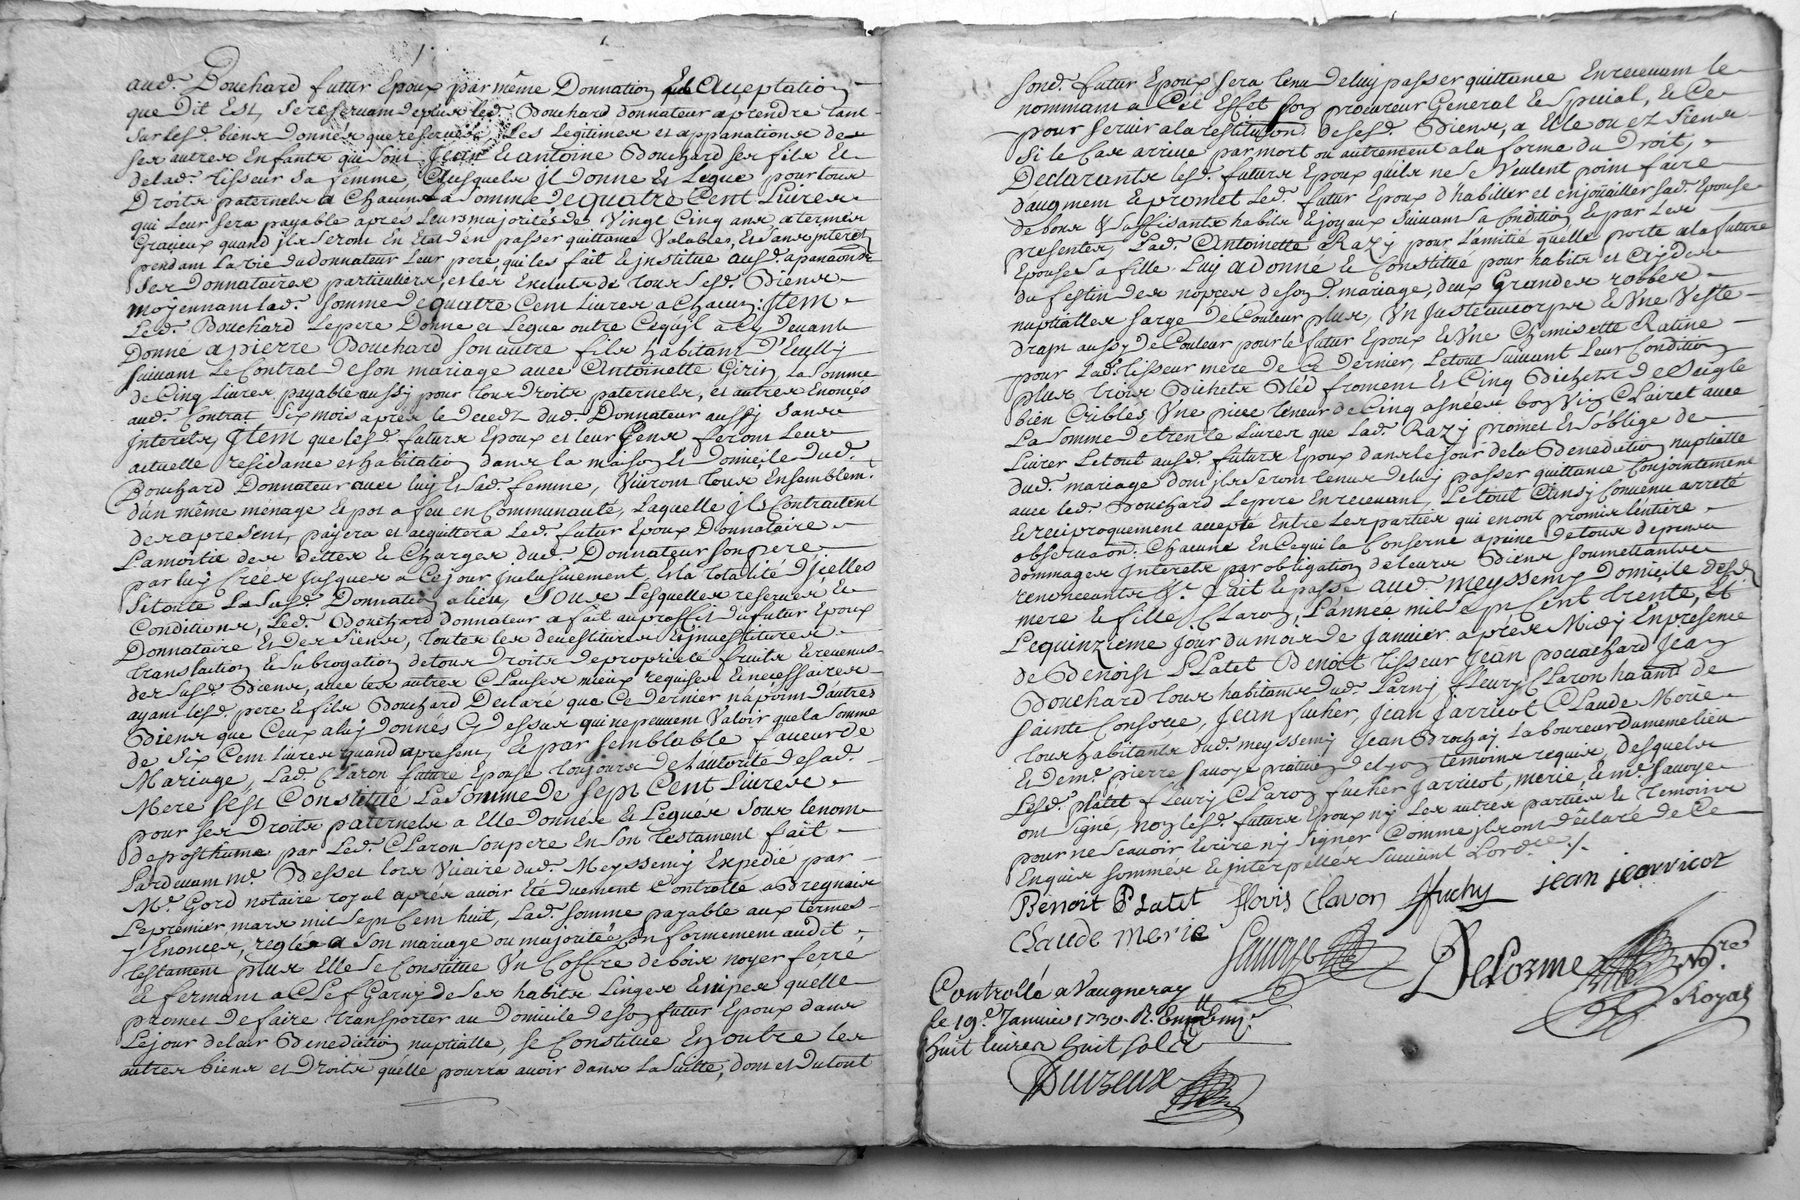 aud. Bouchard futur Epoux par même Donnation Et acceptation
que Dit Est, se reservant de plus led. Bouchard donnateur a prendre tant
sur lesd. biens donnés que reservés, Les Legitimes et appanations de
ses autres Enfants qui sont Jean Et antoine Bouchard ses fils Et
de lad. tisseur sa femme, Ausquels Il donne Et Legue pour tous
Droits paternels a Chacun La somme De quatre Cent Livres
qui Leur sera payable apres Leurs majorités de Vingt Cinq ans a termes
Gracieux quand ils seront En Etat d'en passer quittance Valable, Et sans interet
pendant La vie du donnateur Leur pere, qui les fait Et institue ausd. apanaons
ses Donnataires particuliers, et les Exclut de tous sesd. Biens
moÿennant lad. somme de quatre Cent Livres a Chacun: Item
Led. Bouchard Le pere Donne et Legue outre Ce quil a Cy devant
Donné a pierre Bouchard son autre fils habitant D'Ecully
suivant Le Contrat de son mariage avec Antoinette Girin La somme
de Cinq Livres payable aussy pour tous Droits paternels, et autres Enoncés
aud. Contrat six mois après le decedz dud. Donnateur aussy sans
Interets, Item que lesd. futurs Epoux et leur Gens feront Leur
actuelle residance et habitation dans la maison Et Domicile dud.
Bouchard Donnateur avec luy Et sad. femme, Vivront tous Ensemblem.t
d'un même menage Et pot a feu en Communauté, Laquelle ils Contractent
des apresent, payera et acquittera Led. futur Epoux Donnataire
La moitié des dettes Et Charges dud. Donnateur son pere
par luy Créés Jusques a Ce jour Inclusivement, Et la totalité d'jcelles
si toute La susd. Donnation a lieu, sous Lesquelles reserves Et
Conditions, Led. Bouchard donnateur a fait au proffit du futur Epoux
Donnataire Et des siens, toutes les devestitures Et investitures
translation Et subrogation de tous Droits de proprieté fruits Et revenus
des susd. Biens, avec les autres Clauses mieux requises Et necessaires
ayant lesd. pere Et fils Bouchard Declaré que Ce dernier n'a point d'autres
Biens que Ceux a luy donnés Cy dessus qui ne peuvent Valoir que la somme
de Six Cent Livres quand apresent, Et par semblable faveur de
Mariage, Lad. Claron future Epouse toujours de l'autorité de sad.
Mere s'est Constitué La somme de sept Cent Livres
pour ses Droits paternels a Elle donnés Et Legués sous le nom
de posthume par Led. Claron son pere En son testament fait
Pardevant Me. Besset lors Vicaire dud. Meyssemy Expedié par
Me. Gord notaire royal après avoir Eté duement Controllé a Bregnais
Le premier mars mil sept Cent huit, Lad. somme payable aux termes
y Enoncés, reglés a son mariage ou majorité Conformement audit
testament plus Elle se Constitue Un Coffre de bois noyer ferré
Et fermant a Clef Garny de ses habits Linges Et nipes quelle
promet de faire transporter au Domicile de son futur Epoux dans
Le jour de leur Benediction nuptialle, se Constitue En outre les
autres biens et Droits qu'elle pourra avoir dans La suitte, dont et du tout
sond. futur Epoux sera tenu de luy passer quittance En recevant le
nommant a Cet Effet son procureur General Et special, Et Ce
pour servir a la restitution de sesd. Biens, a Elle ou ez siens
si le Cas arrive par mort ou autrement a la forme du Droit,
Declarants lesd. futurs Epoux qu'ils ne se Veulent point faire
d'augment Et promet Led. futur Epoux d'habiller et enjoüailler sad. Epouse
de bons Et suffisants habits Et joyaux suivant sa Condition Et par Les
presentes, Lad. Antoinette Razy pour L'amitié quelle porte a la future
Epouse sa fille Luy a donné Et Constitué pour habits et Aydes
du festin des nopces de son d. mariage, deux Grandes robbes
nuptialles sarge De Couleur plus, Un Justeaucorps Et Une Veste
drap aussy de Couleur pour le futur Epoux Et Une Chemisette Ratine
pour Lad. tisseur mere de Ce Dernier, Le tout suivant Leur Condition
plus trois Bichets Bled froment Et Cinq Bichets de Seigle
bien Cribles Une piece teneur de Cinq asnées bon Vin Clairet avec
La somme De trente Livres que Lad. Razy promet Et s'oblige de
Livrer Le tout ausd. futurs Epoux dans le jour de la Benediction nuptialle
dud. mariage dont ils seront tenus de luy passer quittance Conjointement
avec led. Bouchard Le pere En recevant Le tout Ainsy Convenu arreté
Et reciproquement accepté Entre Les parties qui en ont promis l'entiere
observaon. Chacune En Ce qui la Conserne a peine de tous depens
dommages Interets par obligation de leurs Biens soumettants
renonceants Et. Fait Et passé aud. Meyssemy Domicile desd.
mere Et fille Claron, L'année mil sept Cent trente, Et
Le quinzieme Jour du mois de Janvier après Midy En presence
de Benoist Platet Benoit tisseur Jean pouachard Jean
Bouchard tous habitants dud. Larny fleury Claron haant de
sainte Consorce, Jean fucher, Jean Jarricot Claude Merie
tous habitants dud. meyssemy Jean Brochay Laboureur du meme lieu
Et de me. pierre Savoye praticien de Lyon temoins requis, desquels
Lesd. platet fleury Claron fucher Jarricot, merie, Et me. Savoye
ont signé, non lesd. futurs Epoux ny Les autres parties Et temoins
pour ne sçavoir écrire ny signer Comme ils ont déclaré de Ce
Enquis sommés Et interpellés suivant L'ordce. /.
Benoit Platet floris Claron ffuchy jean jearricot
Claude Merie
Savoye Delorme Nore.
Royal
Controllé a Vaugneray
le 19e. Janvier 1730. R.
huit livres huit sols
Duvzeux